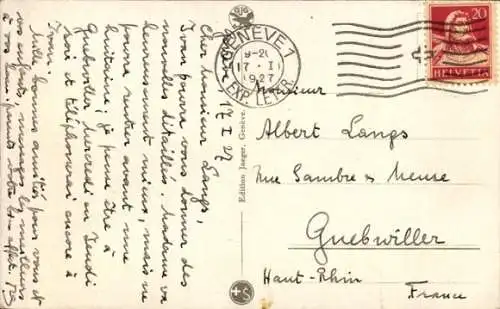 Genève, 17 I 27
Cher monsieur Langs,
Ivan pourra vous donner des
nouvelles détaillées. Madame va
heureusement mieux, mais ne
pourra rentrer avant une
huitaine; je pense être à
Guebwiller mercredi ou Jeudi
soir et téléphonerai encore à
Ivan.
Mille bonnes amitiés pour vous et
vos enfants, messages les meilleurs
à vous
GENÈVE 1
17 · I
1927
EXP. LETTR.
20
HELVETIA
Edition Jaeger, Genève.
Monsieur
Albert Langs
Rue Sambre & Meuse
Guebwiller
Haut-Rhin
France